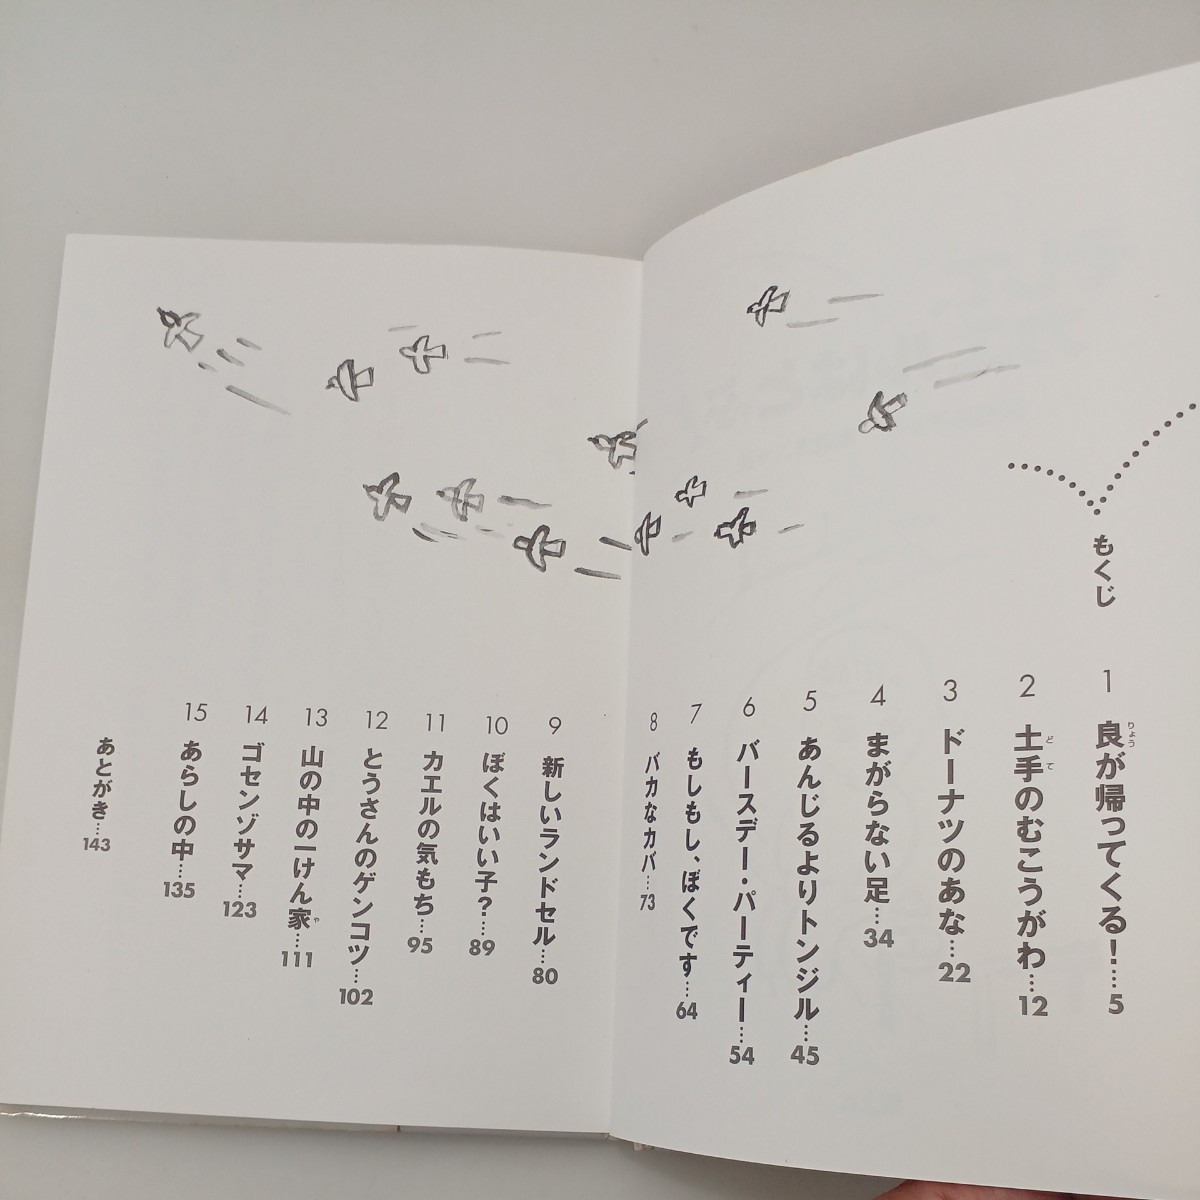 もくじ
1 良が帰ってくる!…5
りょう
2 土手のむこうがわ…12
どて
3 ドーナツのあな…22
4 まがらない足…34
5 あんじるよりトンジル…45
6 バースデー・パーティー…54
7 もしもし、ぼくです…64
8 バカなカバ…73
9 新しいランドセル…80
10 ぼくはいい子?…89
11 カエルの気もち…95
12 とうさんのゲンコツ…102
13 山の中の一けん家…111
や
14 ゴセンゾサマ…123
15 あらしの中…135
あとがき…143